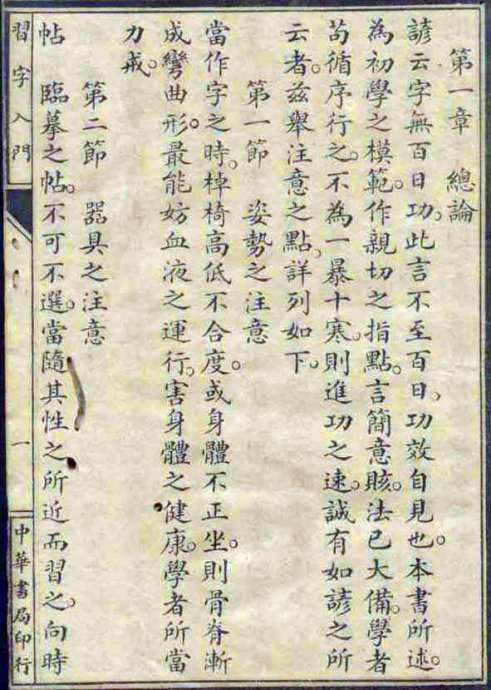 第一章　總論
諺云字無百日功。此言不至百日、功效自見也。本書所述。
為初學之模範。作親切之指點。言簡意賅。法已大備。學者
苟循序行之。不為一暴十寒。則進功之速。誠有如諺之所
云者。茲舉注意之點、詳列如下。
第一節　姿勢之注意
當作字之時。棹椅高低不合度。或身體不正坐。則骨脊漸
成彎曲形。最能妨血液之運行。害身體之健康。學者所當
力戒。
第二節　器具之注意
帖　臨摹之帖。不可不選。當隨其性之所近而習之。向時
習字入門
一
中華書局印行